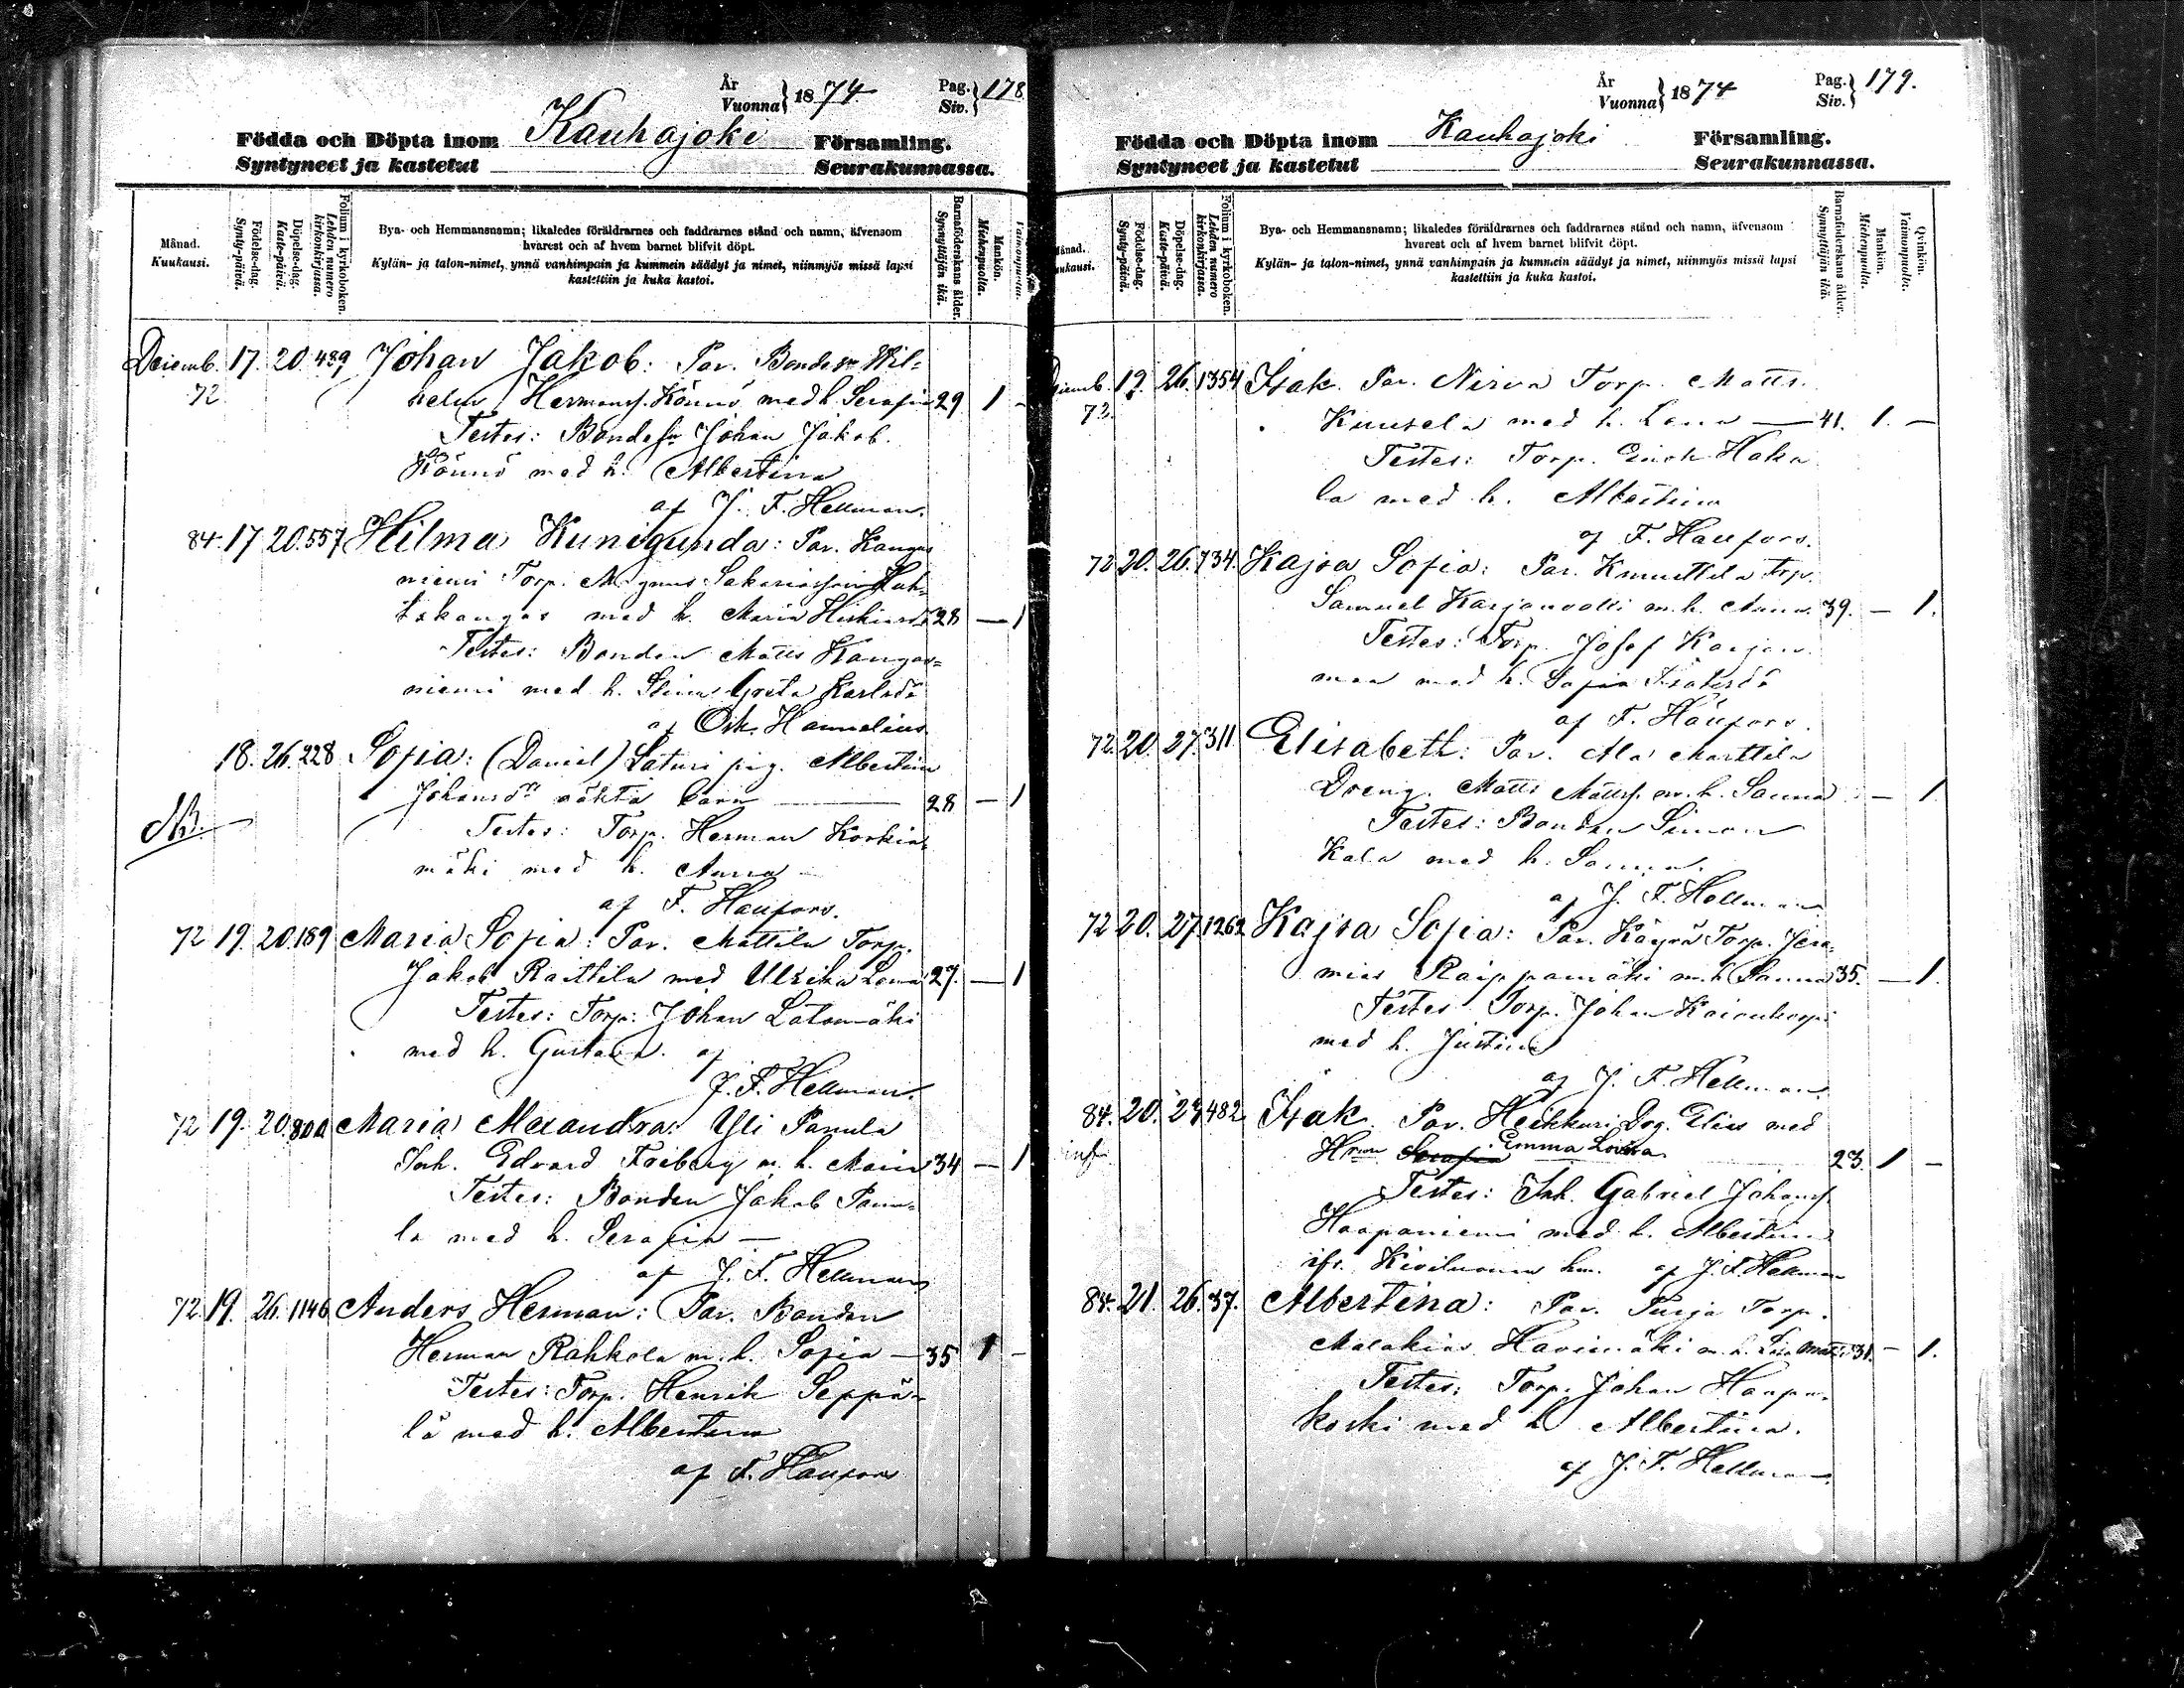 År
Vuonna} 1874
Pag.
Siv.} 178
Födda och Döpta inom Kauhajoki Församling.
Syntyneet ja kastetut Seurakunnassa.
Månad.
Kuukausi.
Födelse-dag.
Synty-päivä.
Döpelse-dag.
Kaste-päivä.
Folium i kyrkoboken.
Lehden numero kirkonkirjassa.
Bya- och Hemmansnamn; likaledes föräldrarnes och faddrarnes stånd och namn, äfvensom
hvarest och af hvem barnet blifvit döpt.
Kylän- ja talon-nimet, ynnä vanhimpain ja kummein säädyt ja nimet, niinmyös missä lapsi
kastettiin ja kuka kastoi.
Barnaföderskans ålder.
Synnyttäjän ikä.
Mankön.
Miehenpuolta.
Vaimonpuolta.
Decemb. 17. 20 489 Johan Jakob: Par. Bondeson Wil-
72 helm Hermanss. Könnö med h. Serafia 29 1 -
Testes: Bondeson Johan Jakob.
Könnö med h. Albertina
af J. F. Hellman.
84. 17 20. 557 Hilma Kunigunda: Par. Kangas
niemi Torp. Magnus Sakariasson
kangas med h. Maria 28 — 1
Testes: Bonden Matts Kangas-
niemi med h. Stina Greta Karlsdr
af Osk. Hannelius
18. 26. 228 Sofia: (Daniel) Laturi pig. Albertina
Johansdr oäkta barn — 28 — 1
Testes: Torp. Herman Korkia-
mäki med h. Anna
af F. Haufors.
72 19. 20. 189 Maria Sofia: Par. Mattila Torp.
Jakob Raittila med Ulrika Lovisa 27. — 1
Testes: Torp: Johan Latomäki
med h. Gustava. af
J. F. Hellman.
72 19. 20. 800 Maria Alexandra: Yli Panula
Inh. Edvard Friberg m. h. Maria 34 — 1
Testes: Bonden Jakob Panu-
la med h. Serafia —
af J. F. Hellman
72. 19. 26. 1146 Anders Herman: Par. Bonden
Herman Rahkola m. h. Sofia — 35 1 -
Testes: Torp. Henrik Seppä-
lä med h. Albertina
af F. Haufors
År
Vuonna} 1874
Pag.
Siv.} 179.
Födda och Döpta inom Kauhajoki Församling.
Syntyneet ja kastetut Seurakunnassa.
Månad.
Kuukausi.
Födelse-dag.
Synty-päivä.
Döpelse-dag.
Kaste-päivä.
Folium i kyrkoboken.
Lehden numero kirkonkirjassa.
Bya- och Hemmansnamn; likaledes föräldrarnes och faddrarnes stånd och namn, äfvensom
hvarest och af hvem barnet blifvit döpt.
Kylän- ja talon-nimet, ynnä vanhimpain ja kummein säädyt ja nimet, niinmyös missä lapsi
kastettiin ja kuka kastoi.
Barnaföderskans ålder.
Synnyttäjän ikä.
Mankön.
Miehenpuolta.
Qvinkön.
Vaimonpuolta.
Decemb. 19. 26. 1354 Isak. Par. Nirva Torp. Matts
72. Kuusela med h. Lena — 41. 1. —
Testes: Torp. Erich Haka
la med h. Albertina
af F. Haufors.
72 20. 26. 734. Kajsa Sofia: Par. Knuuttila trp.
Samuel Karjanvalli m. h. Anna 39. — 1.
Testes: Torp. Josef Karjan
maa med h. Sofia Isaksdr
af F. Haufors.
72. 20. 27. 311. Elisabeth: Par. Ala Marttila
Dreng. Matts Mattss. m. h. Sanna — 1
Testes: Bonden Simon
Kala med h. Sanna.
af J. F. Hellman
72 20. 27. 1262 Kajsa Sofia: Par. Käyrä Torp. Jere-
mias Raippamäki m. h. Sanna 35. — 1.
Testes Torp. Johan
med h. Justina
af J. F. Hellman
84. 20. 27 482 Isak. Par. Heikkuri Drg. Elias med
inf Hrun Serafia Emma Lovisa 23. 1 —
Testes: Inh. Gabriel Johanss.
Haapaniemi med h. Albertina
ifr. Kiviluoma hm. af J. F. Hellman
84. 21. 26. 37. Albertina: Par. Turja Torp.
Malakias Havimäki m. h. Lisa 31. — 1.
Testes: Torp. Johan Haapa-
koski med h Albertina.
af J. F. Hellman.